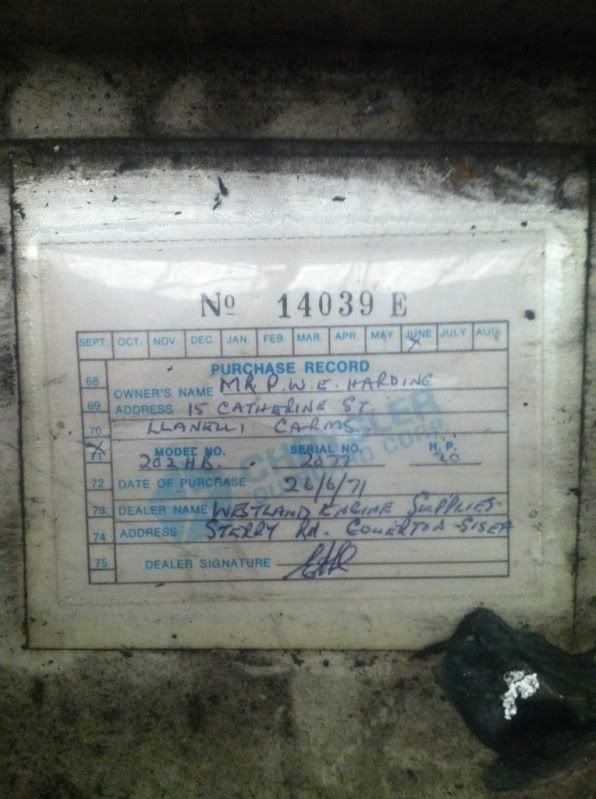 No 14039 E
SEPT. OCT. NOV. DEC. JAN. FEB. MAR. APR. MAY JUNE JULY AUG.
PURCHASE RECORD
68 OWNER'S NAME MR P.W.E. HARDING
69 ADDRESS 15 CATHERINE ST
70 LLANELLI CARMS.
71 MODEL NO. SERIAL NO. H.P.
202 HB. 2077 20
72 DATE OF PURCHASE 26/6/71
73 DEALER NAME WESTLAND ENGINE SUPPLIES
74 ADDRESS STERRY RD. GOWERTON
75 DEALER SIGNATURE
CHRYSLER
CORP.